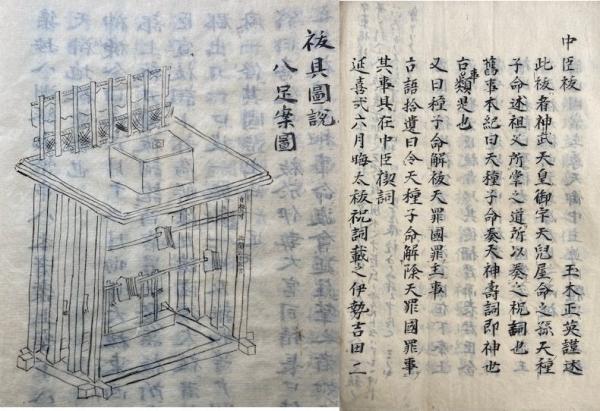 中臣祓 玉木正英謹述
此祓者神武天皇御宇天兒屋命之孫天種
子命述祖父所掌之道所以奏之祝詞也
舊事本紀曰天種子命奏天神壽詞即神世
古事類是也
又曰種子命解祓天罪國罪之事
古語拾遺曰令天種子命解除天罪國罪事
其事具在中臣禊詞
延喜式六月晦太祓祝詞載之伊勢吉田二
祓具圖說
八足案圖